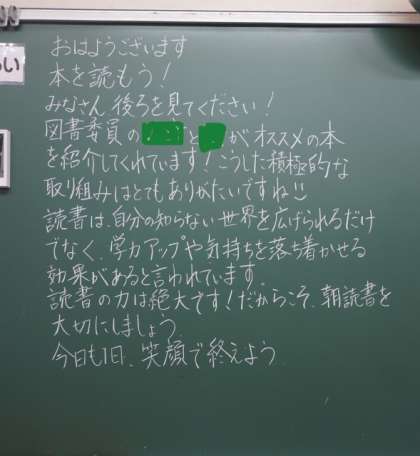 おはようございます
本を読もう!
みなさん、後ろを見てください!
図書委員の と がオススメの本
を紹介してくれています!こうした積極的な
取り組みはとてもありがたいですね!!
読書は、自分の知らない世界を広げられるだけ
でなく、学力アップや気持ちを落ち着かせる
効果があると言われています。
読書の力は絶大です!だからこそ、朝読書を
大切にしましょう。
今日も1日、笑顔で終えよう。